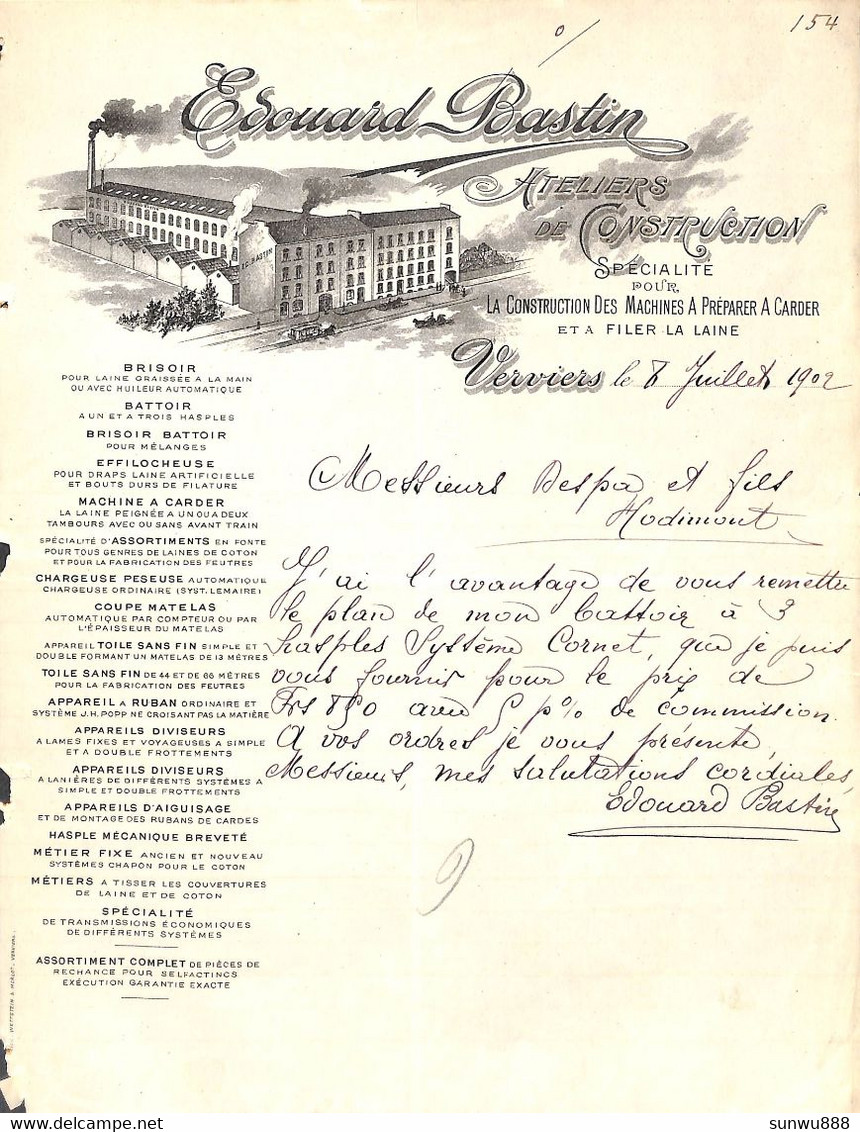 154
Edouard Bastin
ATELIERS
DE CONSTRUCTION
SPÉCIALITÉ
POUR
LA CONSTRUCTION DES MACHINES A PRÉPARER A CARDER
ET A FILER LA LAINE
ED. BASTIN
Verviers le 8 Juillet 1902
BRISOIR
POUR LAINE GRAISSÉE A LA MAIN
OU AVEC HUILEUR AUTOMATIQUE
BATTOIR
A UN ET A TROIS HASPLES
BRISOIR BATTOIR
POUR MÉLANGES
EFFILOCHEUSE
POUR DRAPS LAINE ARTIFICIELLE
ET BOUTS DURS DE FILATURE
MACHINE A CARDER
LA LAINE PEIGNÉE A UN OU A DEUX
TAMBOURS AVEC OU SANS AVANT TRAIN
SPÉCIALITÉ D'ASSORTIMENTS EN FONTE
POUR TOUS GENRES DE LAINES DE COTON
ET POUR LA FABRICATION DES FEUTRES
CHARGEUSE PESEUSE AUTOMATIQUE
CHARGEUSE ORDINAIRE (SYST. LEMAIRE)
COUPE MATELAS
AUTOMATIQUE PAR COMPTEUR OU PAR
L'ÉPAISSEUR DU MATELAS
APPAREIL TOILE SANS FIN SIMPLE ET
DOUBLE FORMANT UN MATELAS DE 13 MÈTRES
TOILE SANS FIN DE 44 ET DE 66 MÈTRES
POUR LA FABRICATION DES FEUTRES
APPAREIL A RUBAN ORDINAIRE ET
SYSTÈME J.H. POPP NE CROISANT PAS LA MATIÈRE
APPAREILS DIVISEURS
A LAMES FIXES ET VOYAGEUSES A SIMPLE
ET A DOUBLE FROTTEMENTS
APPAREILS DIVISEURS
A LANIÈRES DE DIFFÉRENTS SYSTÈMES A
SIMPLE ET DOUBLE FROTTEMENTS
APPAREILS D'AIGUISAGE
ET DE MONTAGE DES RUBANS DE CARDES
HASPLE MÉCANIQUE BREVETÉ
MÉTIER FIXE ANCIEN ET NOUVEAU
SYSTÈMES CHAPON POUR LE COTON
MÉTIERS A TISSER LES COUVERTURES
DE LAINE ET DE COTON
SPÉCIALITÉ
DE TRANSMISSIONS ÉCONOMIQUES
DE DIFFÉRENTS SYSTÈMES
ASSORTIMENT COMPLET DE PIÈCES DE
RECHANGE POUR SELFACTINGS
EXÉCUTION GARANTIE EXACTE
Messieurs Despa et fils
Hodimont
J'ai l'avantage de vous remettre
le plan de mon battoir à 3
hasples Système Cornet, que je puis
vous fournir pour le prix de
Frs 850 avec 5 p% de commission.
A vos ordres je vous présente,
Messieurs, mes salutations cordiales
Edouard Bastin
WETTSTEIN & VERVIERS
www.sunwu888.com